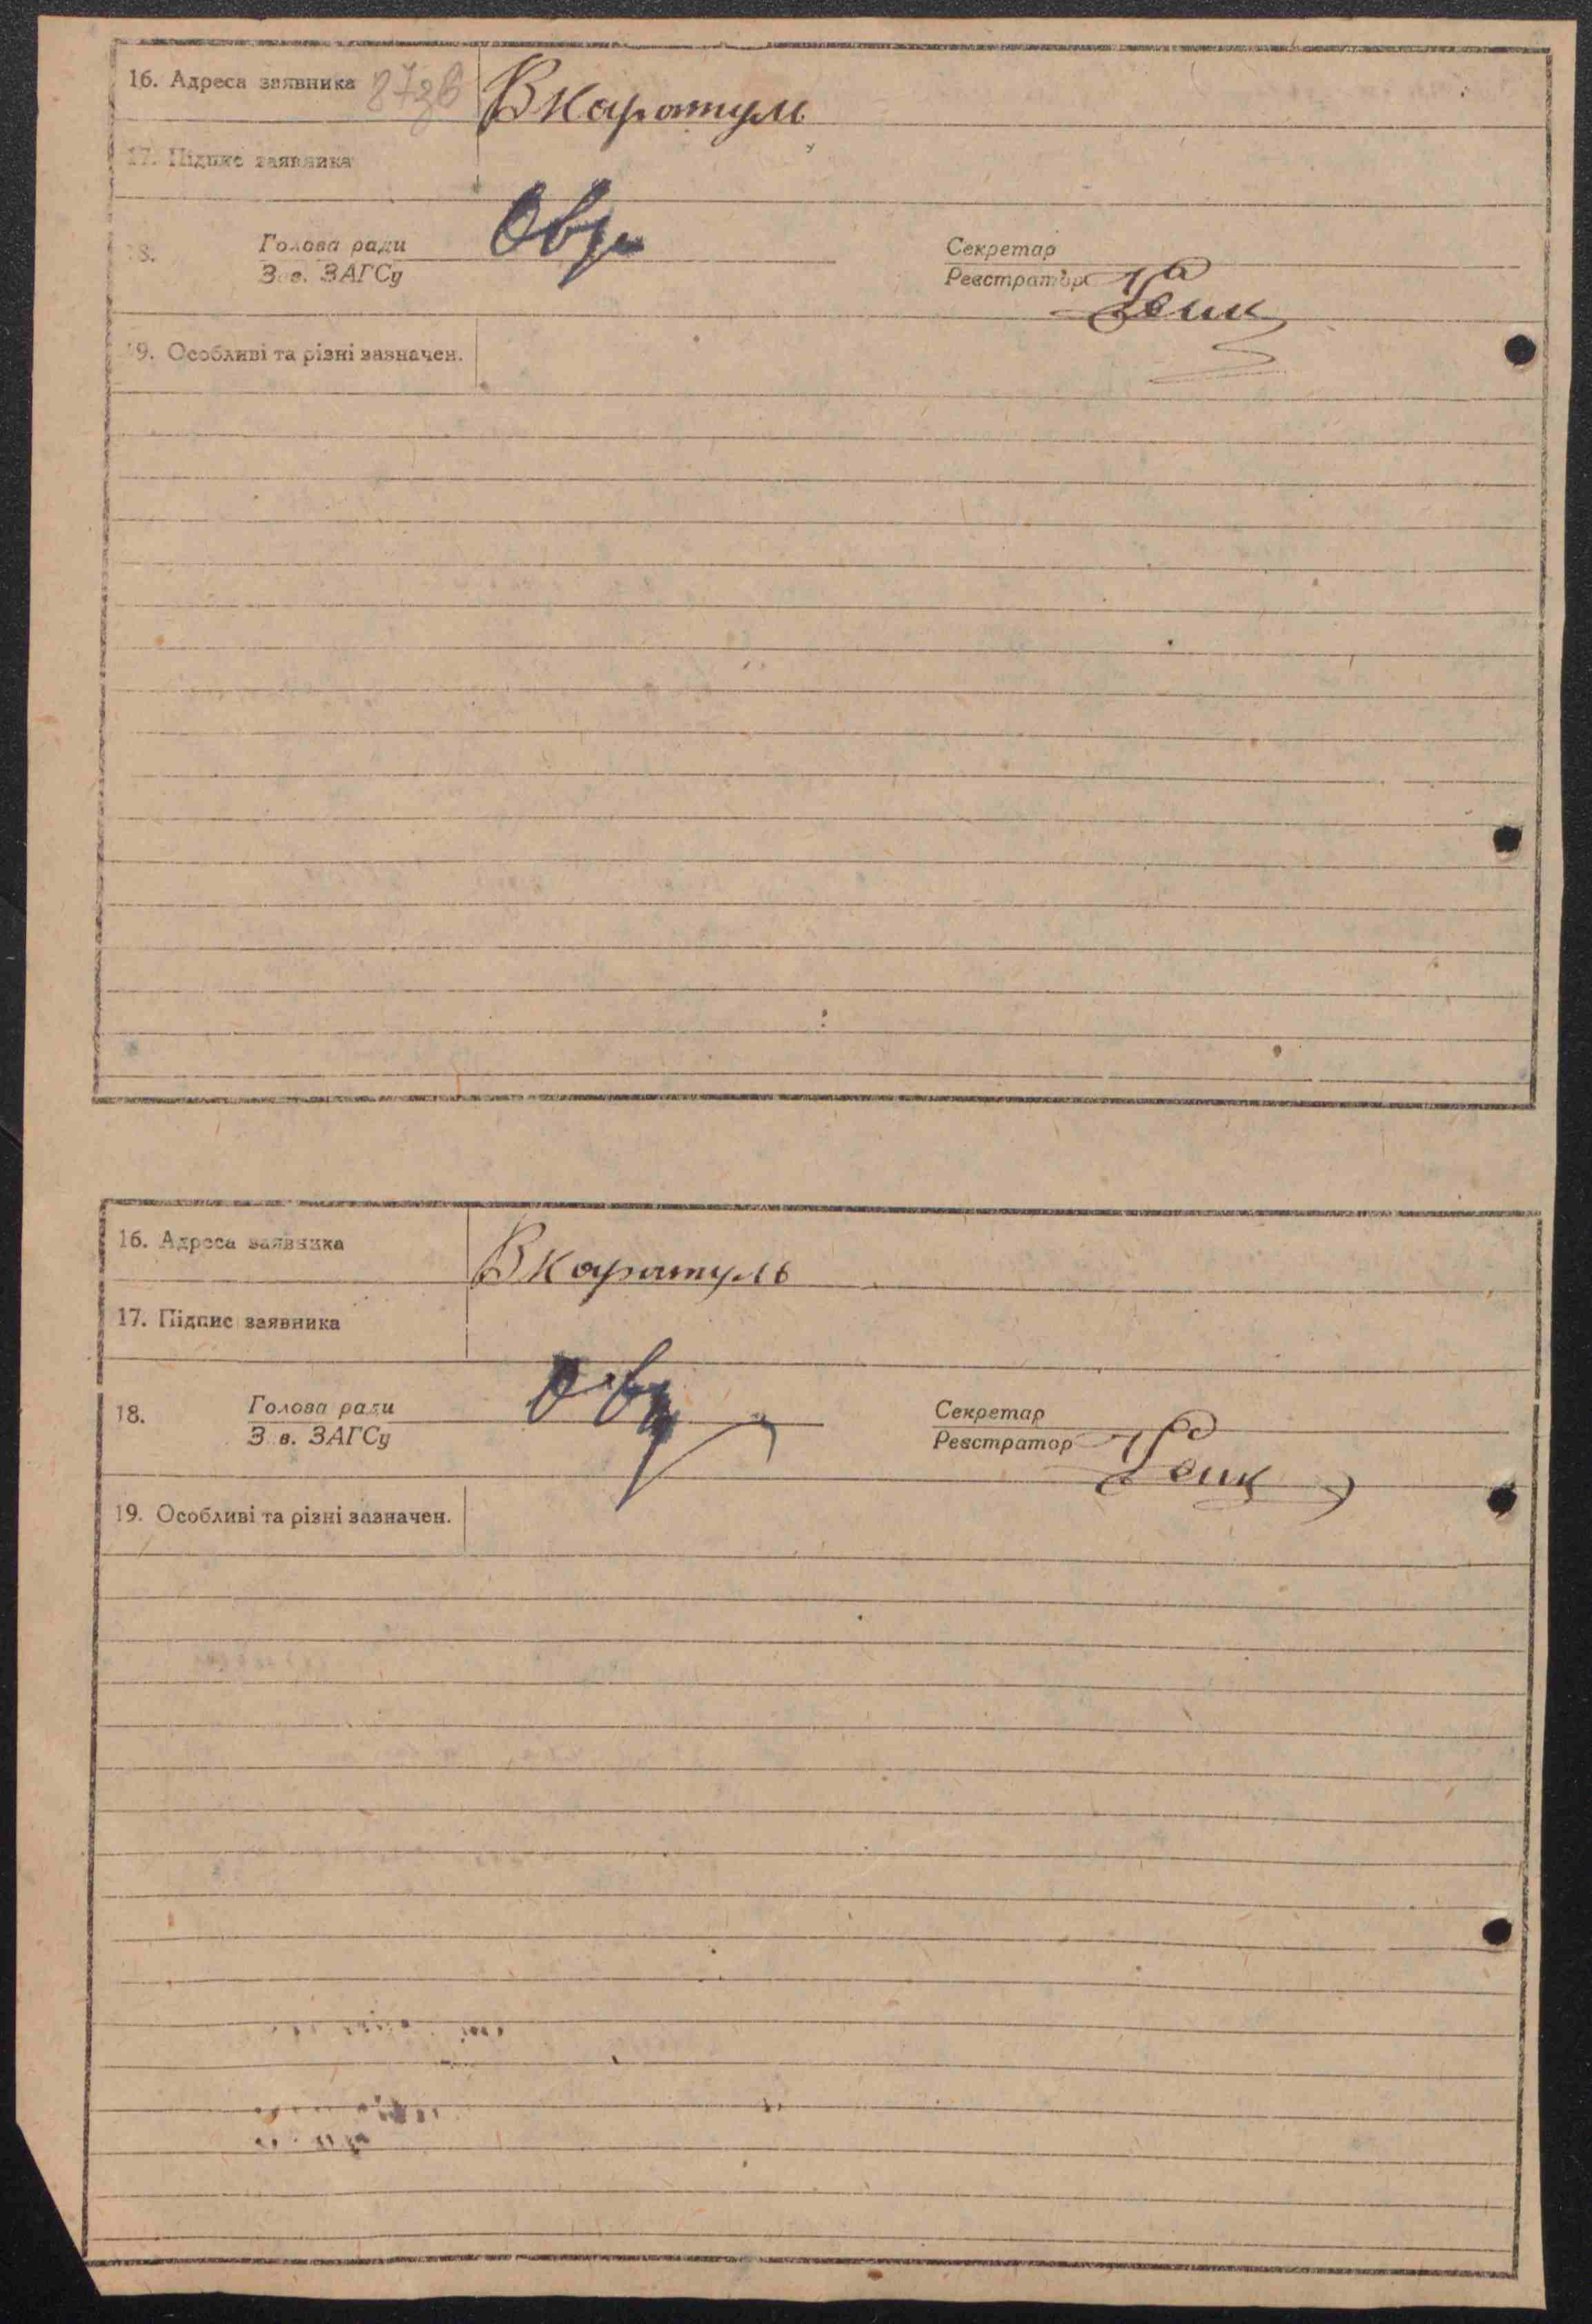 16. Адреса заявника 87зв В Каратуль
17. Підпис заявника
18. Голова ради Секретар
Зав. ЗАГСу Реєстратор
19. Особливі та різні зазначен.
16. Адреса заявника В Каратуль
17. Підпис заявника
18. Голова ради Секретар
Зав. ЗАГСу Реєстратор
19. Особливі та різні зазначен.